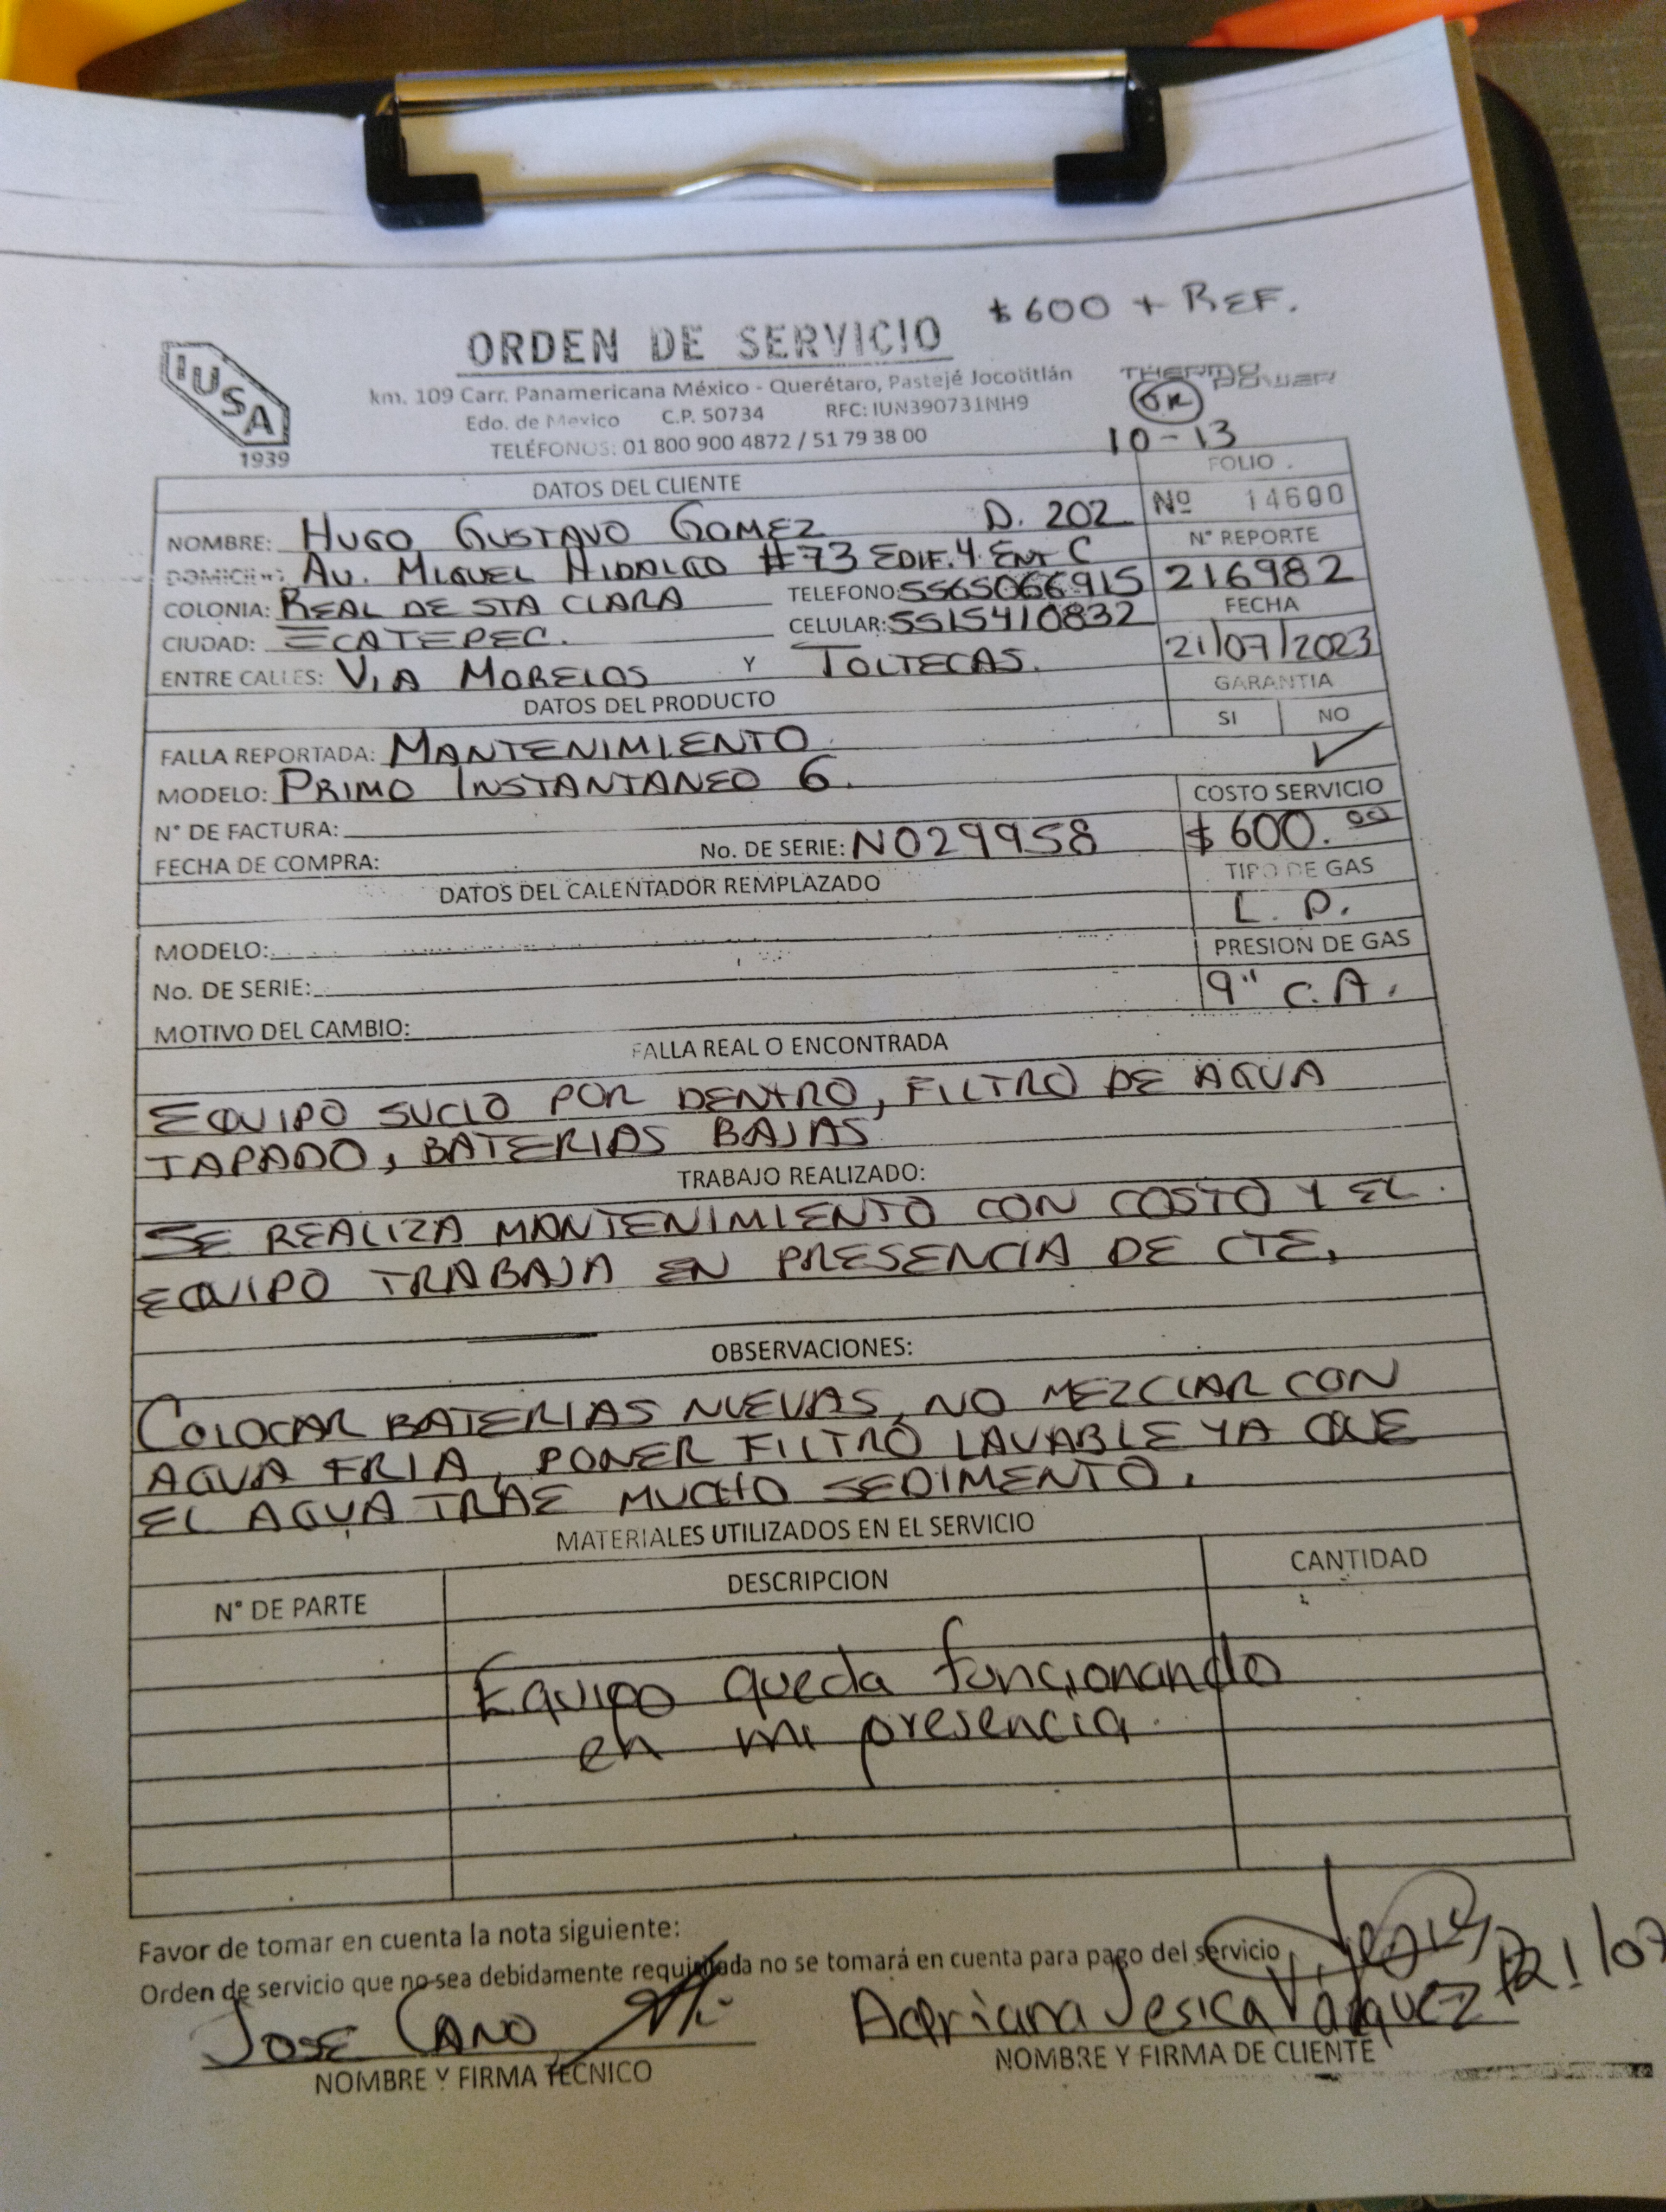 $600 + REF.
ORDEN DE SERVICIO
IUSA
1939
km. 109 Carr. Panamericana México - Querétaro, Pastejé Jocotitlán
Edo. de Mexico C.P. 50734 RFC: IUN390731NH9
TELÉFONOS: 01 800 900 4872 / 51 79 38 00
THERMO POWER
OK
10-13
DATOS DEL CLIENTE
FOLIO
Nº 14600
NOMBRE: HUGO GUSTAVO GOMEZ D. 202
DOMICILIO: AV. MIGUEL HIDALGO #73 EDIF. 4 ENT C
N° REPORTE
216982
COLONIA: REAL DE STA CLARA TELEFONO: 5565066915
CIUDAD: ECATEPEC. CELULAR: 5515410832
FECHA
21/07/2023
ENTRE CALLES: VIA MORELOS Y TOLTECAS.
GARANTIA
SI NO
DATOS DEL PRODUCTO
FALLA REPORTADA: MANTENIMIENTO
MODELO: PRIMO INSTANTANEO 6.
COSTO SERVICIO
$600.00
N° DE FACTURA:
FECHA DE COMPRA: No. DE SERIE: N029958
TIPO DE GAS
L. P.
DATOS DEL CALENTADOR REMPLAZADO
MODELO:
PRESION DE GAS
9" C.A.
No. DE SERIE:
MOTIVO DEL CAMBIO:
FALLA REAL O ENCONTRADA
EQUIPO SUCIO POR DENTRO, FILTRO DE AGUA
TAPADO, BATERIAS BAJAS
TRABAJO REALIZADO:
SE REALIZA MANTENIMIENTO CON COSTO Y EL
EQUIPO TRABAJA EN PRESENCIA DE CTE.
OBSERVACIONES:
COLOCAR BATERIAS NUEVAS, NO MEZCLAR CON
AGUA FRIA, PONER FILTRO LAVABLE YA QUE
EL AGUA TRAE MUCHO SEDIMENTO.
MATERIALES UTILIZADOS EN EL SERVICIO
N° DE PARTE DESCRIPCION CANTIDAD
Equipo queda funcionando
en mi presencia
Favor de tomar en cuenta la nota siguiente:
Orden de servicio que no sea debidamente requisitada no se tomará en cuenta para pago del servicio
JOSE CANO
Adriana Jesica Vázquez 21/07
NOMBRE Y FIRMA TÉCNICO
NOMBRE Y FIRMA DE CLIENTE